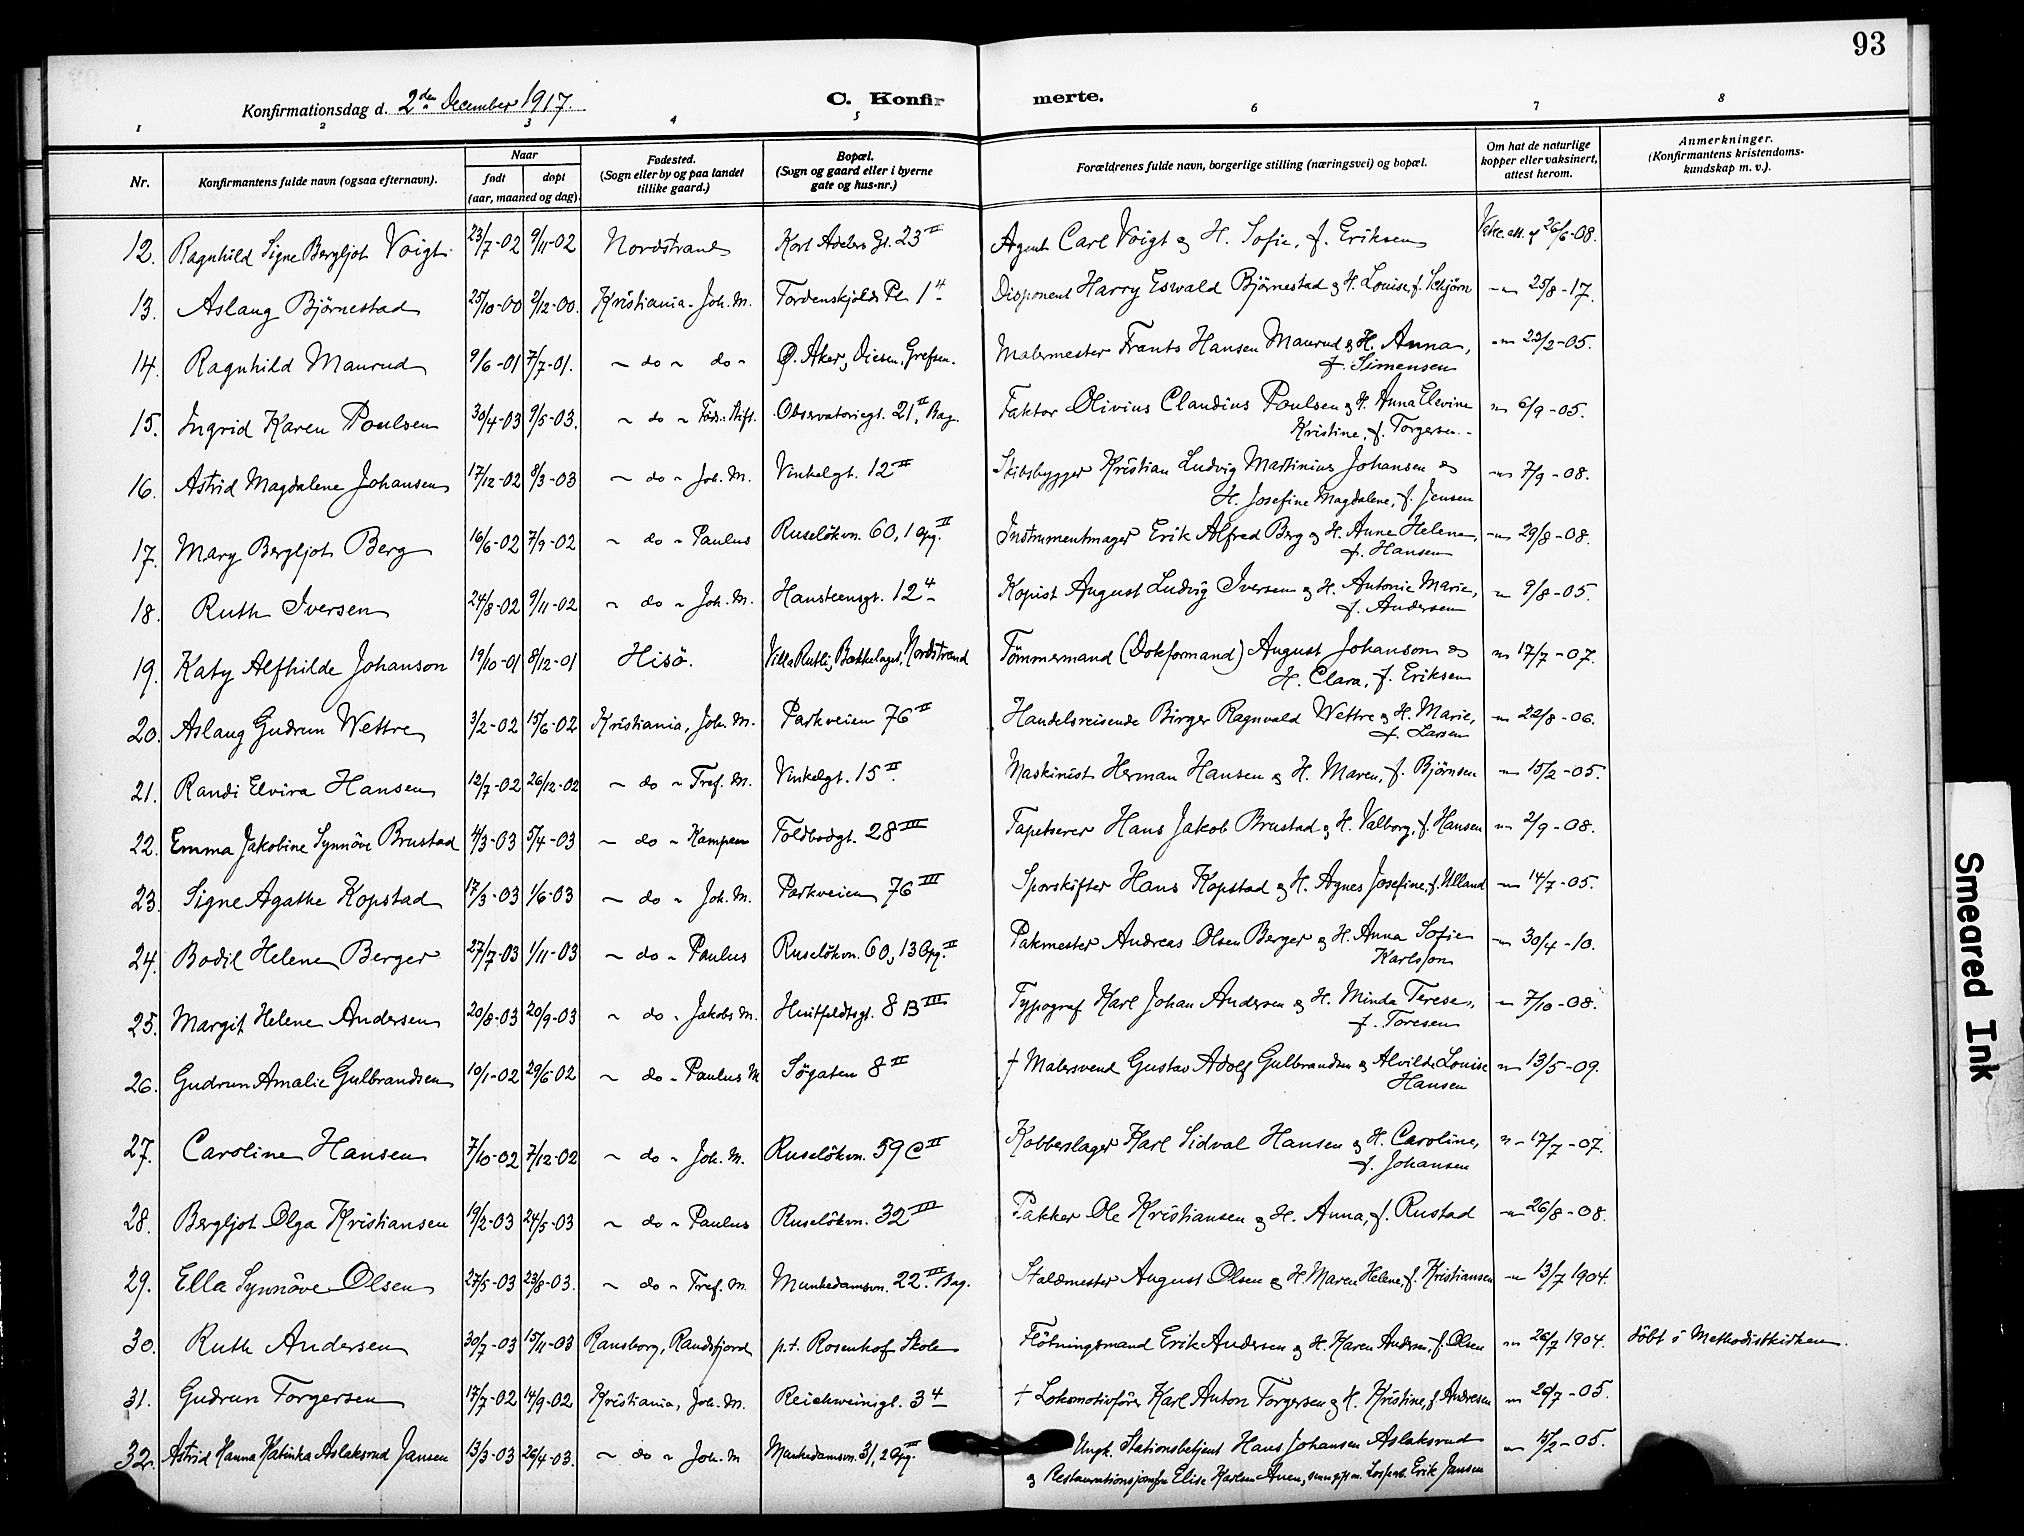 93
Konfirmationsdag d. 2den December 1917.
C. Konfirmerte.
1 2 3 4 5 6 7 8
Nr.
Konfirmantens fulde navn (ogsaa efternavn).
Naar
født
døpt
(aar, maaned og dag).
Fødested.
(Sogn eller by og paa landet
tillike gaard.)
Bopæl.
(Sogn og gaard eller i byerne
gate og hus-nr.)
Forældrenes fulde navn, borgerlige stilling (næringsvei) og bopæl.
Om hat de naturlige
kopper eller vaksinert,
attest herom.
Anmerkninger.
(Konfirmantens kristendoms-
kundskap m. v.).
12. Ragnhild Signe Bergljot Voigt 23/7-02 9/11-02 Nordstrand Kort Adelers Gt. 23 II Agent Carl Voigt & H. Sofie, f. Eriksen Vakc. att. af 26/6-08.
13. Aslaug Björnestad 25/10-00 2/12-00. Kristiania, Joh. M. Tordenskjolds Pl. 1 4 Disponent Harry Eswald Björnestad & H. Louise, f. Schjörn -"- 25/8-17.
14. Ragnhild Maurud 9/6-01 7/7-01. " do " do " Ø. Aker, Grefsen. Malermester Frants Hansen Maurud & H. Anna, -"- 23/2-05.
f. Simensen
15. Ingrid Karen Poulsen 30/4-03 9/5-03. " do " Föds. Stift. Observatoriegt. 21 II, Bag. Faktor Olivius Claudius Poulsen & H. Anna Elevine " 6/9-05.
Kristine, f. Torgersen.
16. Astrid Magdalene Johansen 17/12-02 8/3-03 " do " Joh. M. Vinkelgt. 12 III Skibsbygger Kristian Ludvig Martinius Johansen & -"- 7/9-08.
H. Josefine Magdalene, f. Jensen
17. Mary Bergljot Berg 16/6-02 7/9-02 " do " Paulus Ruselökvn. 60, 1 Opg. II Instrumentmager Erik Alfred Berg & H. Anne Helene, -"- 29/8-08.
f. Hansen
18. Ruth Iversen 24/8-02 9/11-02 " do " Joh. M. Hansteensgt. 12 4 Kopist August Ludvig Iversen & H. Antonie Marie, " 9/8-05.
f. Andersen
19. Katy Alfhilde Johanson 19/10-01 8/12-01 Hisö. Villa Rutli, Bækkelaget, Nordstrand Tömmermand (Dokformand) August Johanson & " 17/7-07.
H. Clara, f. Eriksen
20. Aslaug Gudrun Wettre 3/2-02 15/6-02 Kristiania, Joh. M. Parkveien 76 II Handelsreisende Birger Ragnvald Wettre & H. Marie, " 22/8-06.
f. Larsen
21. Randi Elvira Hansen 12/7-02 26/12-02 " do " Tref. M. Vinkelgt. 15 II. Maskinist Herman Hansen & H. Maren, f. Björnsen " 15/2-05.
22. Emma Jakobine Synnöve Brustad 4/3-03 5/4-03 " do " Kampen Toldbodgt. 28 III Tapetserer Hans Jakob Brustad & H. Valborg, f. Hansen " 2/9-08.
23. Signe Agathe Kopstad 17/3-03 1/6-03 " do " Joh. M. Parkveien 76 III Sporskifter Hans Kopstad & H. Agnes Josefine, f. Ulland " 14/7-05.
24. Bodil Helene Berger 27/7-03 1/11-03 " do " Paulus Ruselökvn. 60, 13 Opg. II Pakmester Andreas Olsen Berger & H. Anna Sofie " 30/4-10.
Karlsson
25. Margit Helene Andersen 20/8-03 20/9-03 " do " Jakobs M. Huitfeldtsgt. 8 B III Typograf Karl Johan Andersen & H. Minda Terese, " 7/10-08.
f. Toresen
26. Gudrun Amalie Gulbrandsen 10/1-02 29/6-02 " do " Paulus M Sögaten 8 II † Malersvend Gustav Adolf Gulbrandsen & Alvilde Louise " 13/5-09.
Hansen
27. Caroline Hansen 7/10-02 7/12-02 " do " Joh. M. Ruselökvn. 59 C II Kobberslager Karl Sidval Hansen & H. Caroline, " 17/7-07.
f. Johansen
28. Bergljot Olga Kristiansen 19/2-03 24/5-03 " do " Paulus Ruselökvn. 32 III Pakker Ole Kristiansen & H. Anna, f. Rustad " 26/8-08.
29. Ella Synnöve Olsen 27/5-03 23/8-03. " do " Tref. M. Munkedamsvn. 22. III Bag. Staldmester August Olsen & H. Maren Helene, f. Kristiansen " 13/7 1904.
30. Ruth Andersen 30/7-03 15/11-03 Ransborg, Randsfjord p.t. Rosenhof Skole Flötningsmand Erik Andersen & H. Karen Andersen, f. Olsen " 26/7 1904. döbt i Methodistkirken.
31. Gudrun Torgersen 17/7-02 14/9-02 Kristiania, Joh. M. Reichweinsgt. 3 4 † Lokomotivförer Karl Anton Torgersen & H. Kristine, f. Andresen " 26/7-05.
32. Astrid Hanna Katinka Aslaksrud Jansen 13/3-03 26/4-03. " do " Joh. M Munkedamsvn. 31, 2 Opg. III Ungk. Stationsbetjent Hans Johansen Aslaksrud " 15/2-05.
& Restaurationsjomfru Elise Karlsen Auen, senere gift m. Erik Jansen
Smeared Ink